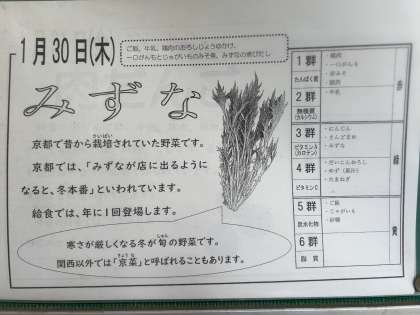 1月30日(木)
ご飯、牛乳、鶏肉のおろしじょうゆかけ、
一口がんもとじゃがいものみそ煮、みずなの煮びたし
みずな
京都で昔から栽培されていた野菜です。
さいばい
京都では、「みずなが店に出るように
なると、冬本番」といわれています。
給食では、年に1回登場します。
寒さが厳しくなる冬が旬の野菜です。
しゅん
関西以外では「京菜」と呼ばれることもあります。
きょうな
1群
たんぱく質
・鶏肉
・一口がんも
・赤みそ
・鶏肉
2群
無機質
(カルシウム)
・牛乳
赤
3群
ビタミンA
(カロテン)
・にんじん
・さんどまめ
・みずな
4群
ビタミンC
・だいこんおろし
・ゆず(果汁)
・たまねぎ
緑
5群
炭水化物
・ご飯
・じゃがいも
・砂糖
6群
脂質
黄